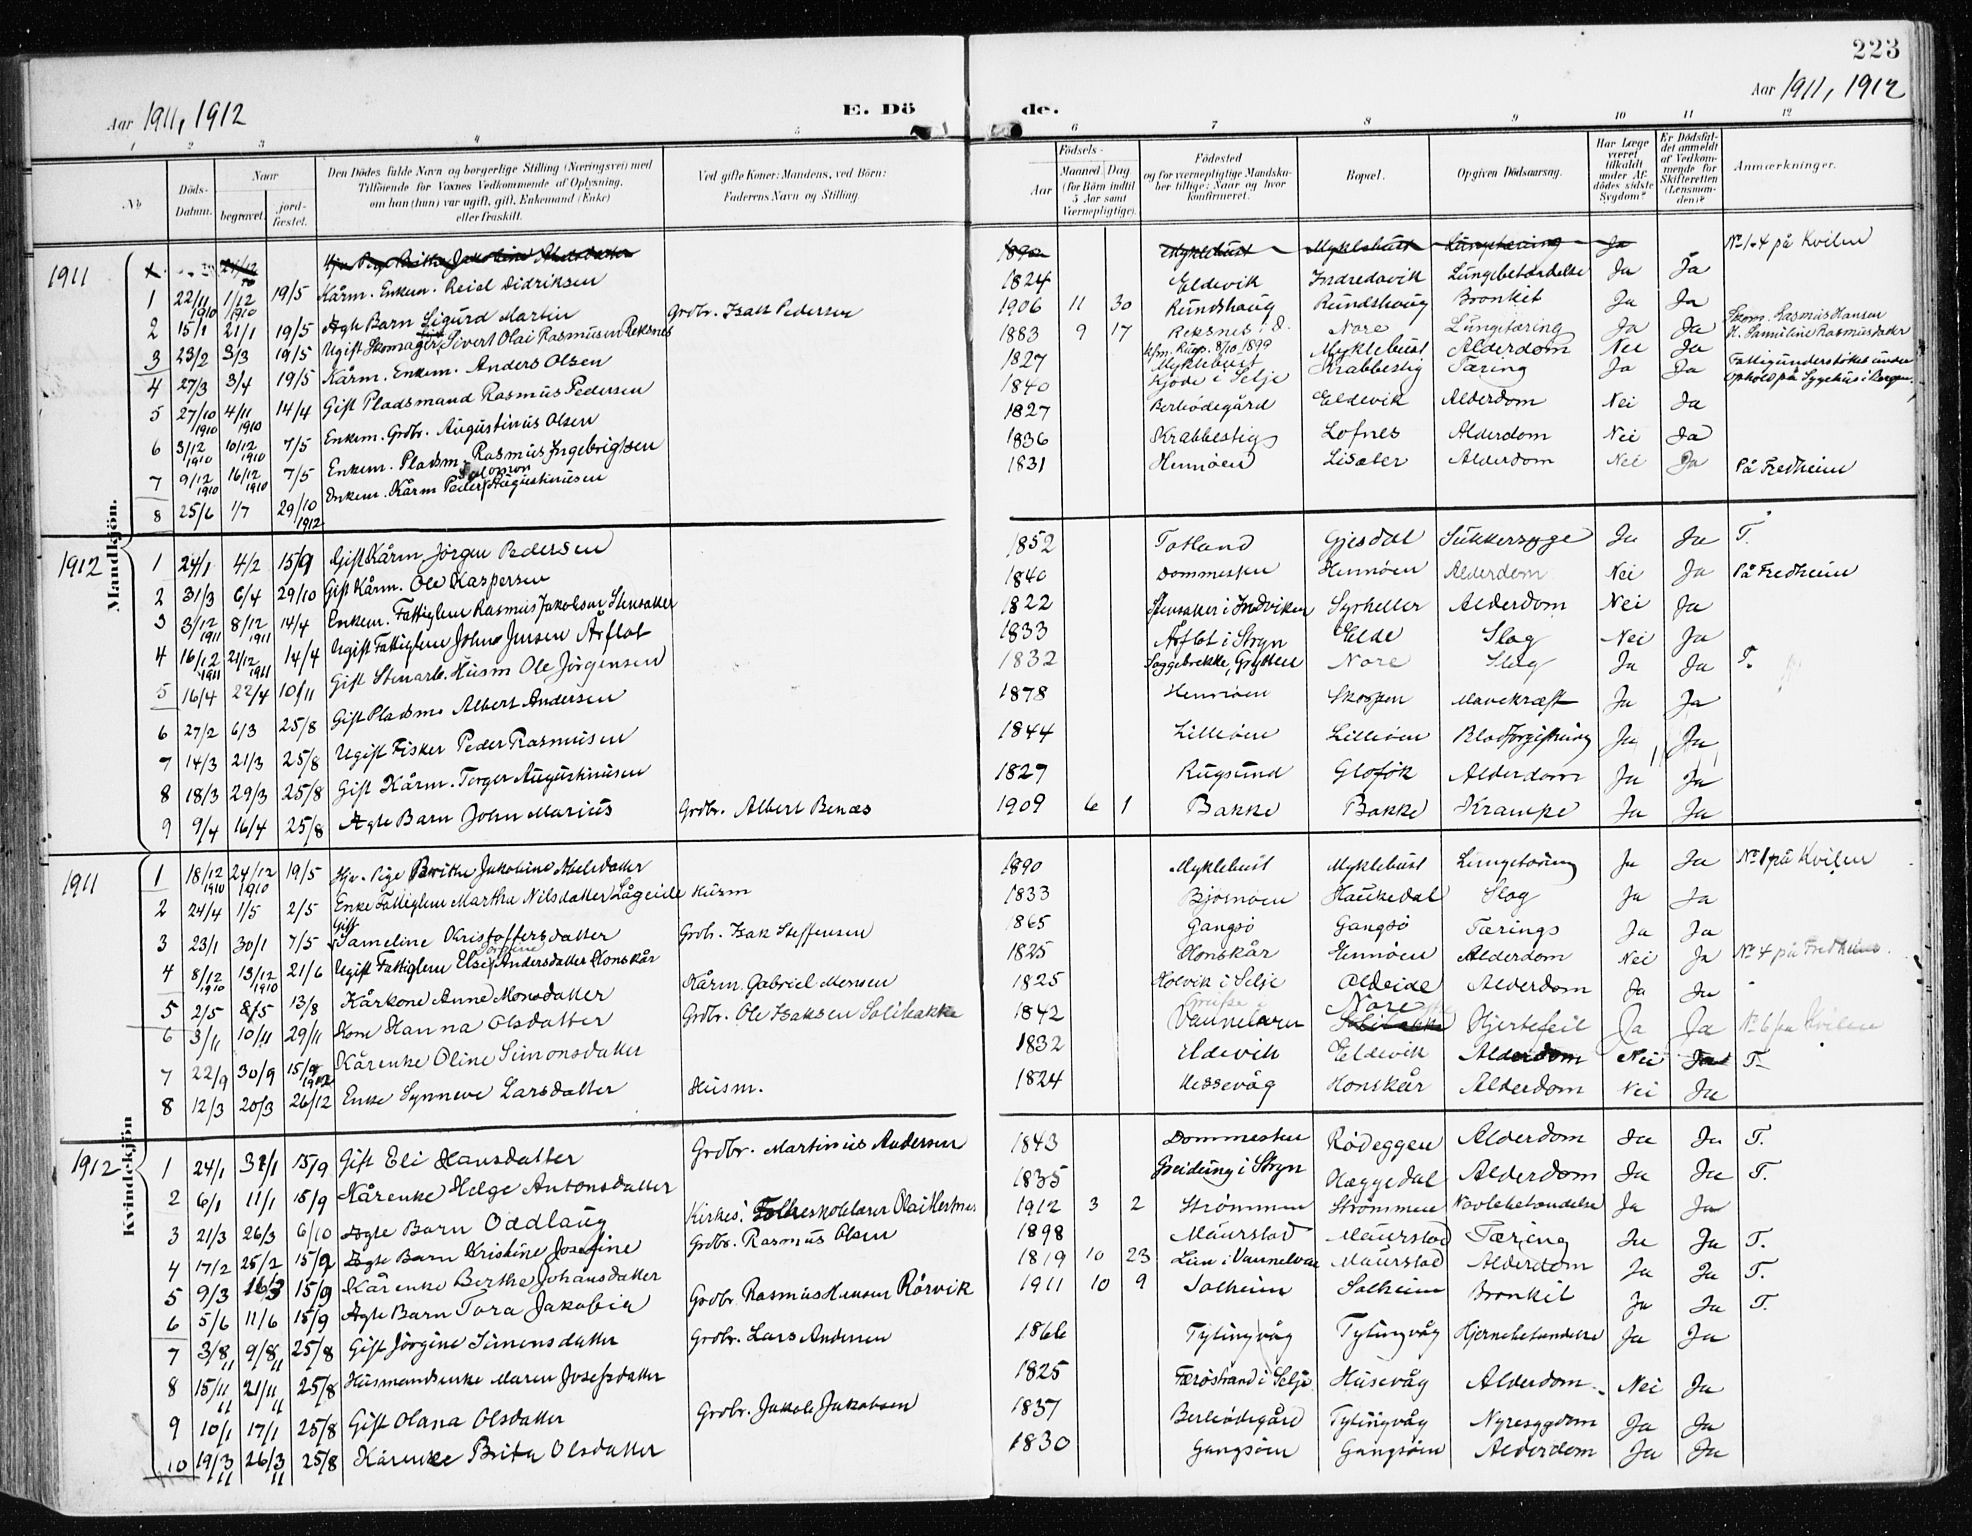 223
Aar 1911, 1912 E. Dö de. Aar 1911, 1912
1 2 3 4 5 6 7 8 9 10 11 12
No Döds-Datum. Naar begravet. jord-fæstet. Den Dödes fulde Navn og borgerlige Stilling (Næringsvei) med Tilföiende for Voxnes Vedkommende af Oplysning, om han (hun) var ugift, gift, Enkemand (Enke) eller fraskilt. Ved gifte Koner: Mandens, ved Börn: Faderens Navn og Stilling. Födsels- Aar Maaned Dag (for Börn indtil 5 Aar samt Værnepligtige). Födested og for værnepligtige Mandskaber tillige: Naar og hvor konfirmeret. Bopæl. Opgiven Dödsaarsag. Har Læge været tilkaldt under Afdödes sidste Sygdom? Er Dödsfaldet anmeldt af Vedkommende for Skifteretten (Lensmanden)? Anmærkninger.
Mandkjön.
1911
Hjv. Pige Brithe Jakobine Abelsdatter 1890 Myklebust Myklebust Lungetæring Ja No 1-4 på Kvilen
1 22/11 1910 1/12 1910 19/5 Kårm. Enkem. Reiel Didriksen 1824 Eldevik Indredavik Lungebetændelse Ja Ja
2 15/1 21/1 19/5 Ægte Barn Sigurd Martin Grdbr. Isak Pedersen 1906 11 30 Rundshaug Rundshaug Bronkit Ja Ja
3 23/2 3/3 19/5 Ugift Skomager Sivert Olai Rasmusen Reksnes 1883 9 17 Reksnes i D. kfm. Rugs. 8/10 1899 Nore Lungetæring Ja Ja Skom. Rasmus Hansen H. Samuline Rasmusdatter
4 27/3 3/4 19/5 Kårm. Enkem. Anders Olsen 1827 Myklebust Myklebust Alderdom Nei Ja
5 27/10 1910 4/11 1910 14/4 Gift Pladsmand Rasmus Pedersen 1840 Hjöde i Selje Krabbestig Tæring Ja Ja Fattigunderstöttet under ophold på Sygehus i Bergen
6 3/12 1910 10/12 1910 7/5 Enkem. Grdbr. Augustinus Olsen 1827 Berhödegård Eldevik Alderdom Nei Ja
7 9/12 1910 16/12 1910 7/5 Enkem. Pladsm. Rasmus Ingebrigtsen 1836 Krabbestig Lofnes Alderdom Nei Ja
8 25/6 1/7 29/10 1912 Enkem. Kårm Peder Salomon Augustinusen 1831 Hennöen Lisæter Alderdom Nei Ja På Fredheim
1912
1 24/1 4/2 15/9 Gift Kårm Jörgen Pedersen 1852 Totland Gjesdal Sukkersyge Ja Ja T.
2 31/3 6/4 29/10 Gift Kårm. Ole Kaspersen 1840 Dommesten Hennöen Alderdom Nei Ja På Fredheim
3 3/12 1911 8/12 1911 14/4 Enkem. Fattiglem Rasmus Jakobsen Stensatter 1822 Stensatter i Indviken Syrheller Alderdom Nei Ja
4 16/12 1911 21/12 1911 14/4 Ugift Fattiglem Johns Jensen Årflot 1833 Årflot i Stryn Elde Slag Nei Ja
5 16/4 22/4 10/11 Gift Stenarb. Husm Ole Jörgensen 1832 Soggebrekke, Grytten Nore Slag Ja Ja T.
6 27/2 6/3 25/8 Gift Pladsm. Albert Andersen 1878 Hennöen Skospen Mavekræft Ja Ja
7 14/3 21/3 25/8 Ugift Fisker Peder Rasmusen 1844 Lilleöen Lilleöen Blodforgiftning Ja Ja
8 18/3 29/3 25/8 Gift Kårm. Torger Augustinusen 1827 Rugsund Glofok Alderdom Ja Ja
9 9/4 16/4 25/8 Ægte Barn John Marius Grdbr. Albert Benas 1909 6 1 Bakke Bakke Krampe Ja Ja
Kvindekjön
1911
1 18/12 1910 24/12 1910 19/5 Hjv. Pige Brithe Jakobine Abelsdatter 1890 Myklebust Myklebust Lungetæring Ja Ja No 1 på Kvilen
2 24/4 1/5 2/5 Enke Fattiglem Martha Nilsdatter Lågeide Husm 1833 Bjørnöen Haukedal Slag Ja Ja
3 23/1 30/1 7/5 Gift Sameline Kristoffersdatter Grdb. Isak Steffensen 1865 Gangsö Gangsö Tærings Ja Ja
4 8/12 1910 13/12 1910 21/6 Ugift Fattiglem Else Jörgine Andersdatter Honskår 1825 Honskår Hennöen Alderdom Nei Ja No 4 på Fredheim.
5 2/5 8/5 13/8 Kårkone Anne Monsdatter Kårm. Gabriel Monsen 1825 Holvik i Selje Aldeide Alderdom Ja Ja
6 3/11 10/11 29/11 Kone Hanna Olsdatter Grdbr. Ole Isaksen Solibakke 1842 Vannelven Nore Solibakke Hjertefeil Ja Ja No 6 på Kvilen
7 22/9 30/9 15/9 1912 Kårenke Oline Simonsdatter 1832 Eldevik Eldevik Alderdom Nei Ja T.
8 12/3 20/3 26/12 Enke Synneve Larsdatter Husm. 1824 Hessevåg Honskår Alderdom Nei Ja
1912
1 24/1 31/1 15/9 Gift Eli Hansdatter Grdbr. Martinus Andersen 1843 Dommesten Rödeggen Alderdom Ja Ja T.
2 6/1 11/1 15/9 Kårenke Helge Antonsdatter 1835 Greidung i Stryn Hæggedal Alderdom Ja Ja T.
3 21/3 26/3 6/10 Ægte Barn Oddlaug Kirkes. Folkeskolelærer Olai Hestnes 1912 3 2 Strömmen Strömmen Navlebetændelse Ja Ja
4 17/2 25/2 15/9 Ægte Barn Kristine Josefine Grdbr. Rasmus Olsen 1898 Maurstad Maurstad Tæring Ja Ja T.
5 9/3 16/3 15/9 Kårenke Berthe Johansdatter 1819 10 23 Lien i Vannelven Maurstad Alderdom Ja Ja T.
6 5/6 11/6 15/9 Ægte Barn Tora Jakobia Grdbr. Rasmus Hansen Rörvik 1911 10 9 Solheim Solheim Bronkit Ja Ja T.
7 3/8 11 9/8 11 25/8 Gift Jörgine Simensdatter Grdbr. Lars Andersen 1866 Tytingvåg Tytingvåg Hjernebetændelse Ja Ja
8 15/11 11 21/11 11 25/8 Husmandsenke Maren Josefsdatter 1825 Færöstrand i Selje Husevåg Alderdom Nei Ja
9 10/1 17/1 25/8 Gift Olana Olsdatter Grdbr. Jakob Jakobsen 1837 Berhödegård Tytingvåg Nyresygdom Ja Ja
10 19/3 11 26/3 11 25/8 Kårenke Brita Olsdatter 1830 Gangsöen Gangsöen Alderdom Ja Ja